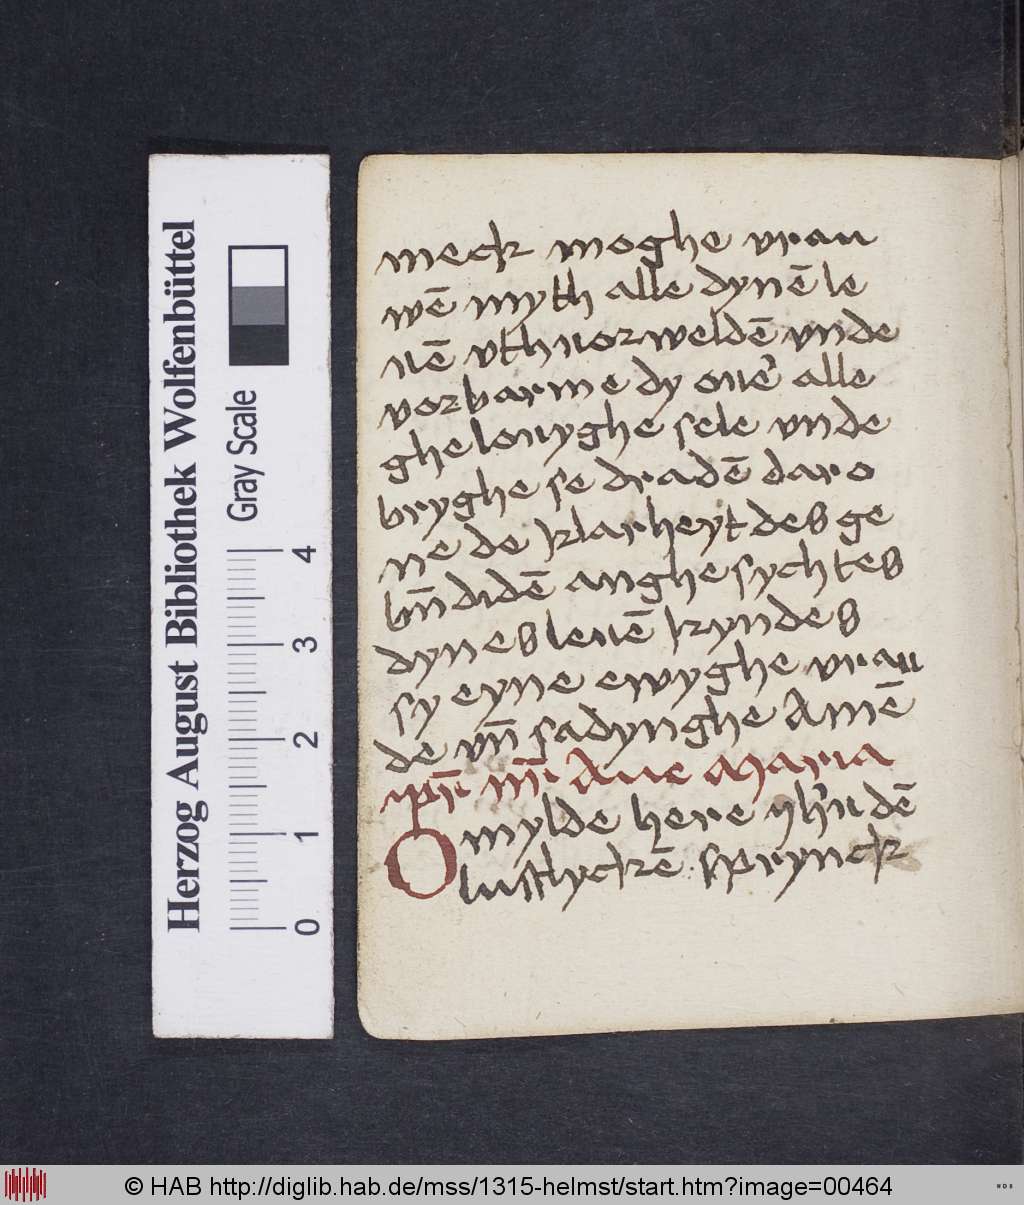 meck moghe vrau
wē myth alle dynē le
uē vthuorweldē vnde
vorbarme dy ouer̄ alle
ghelouyghe sele vnde
bryghe se dradē daro
ne de klarheyt des ge
bn̄didē anghesychtes
dynes leuē kyndes
sy eyne ewyghe vrau
de vn̄ sadynghe Amē
pr̄ nr̄ Aue Maria
O mylde here yhū dē
lustlyckē sprynck
Herzog August Bibliothek Wolfenbüttel
Gray Scale
0 1 2 3 4
© HAB http://diglib.hab.de/mss/1315-helmst/start.htm?image=00464